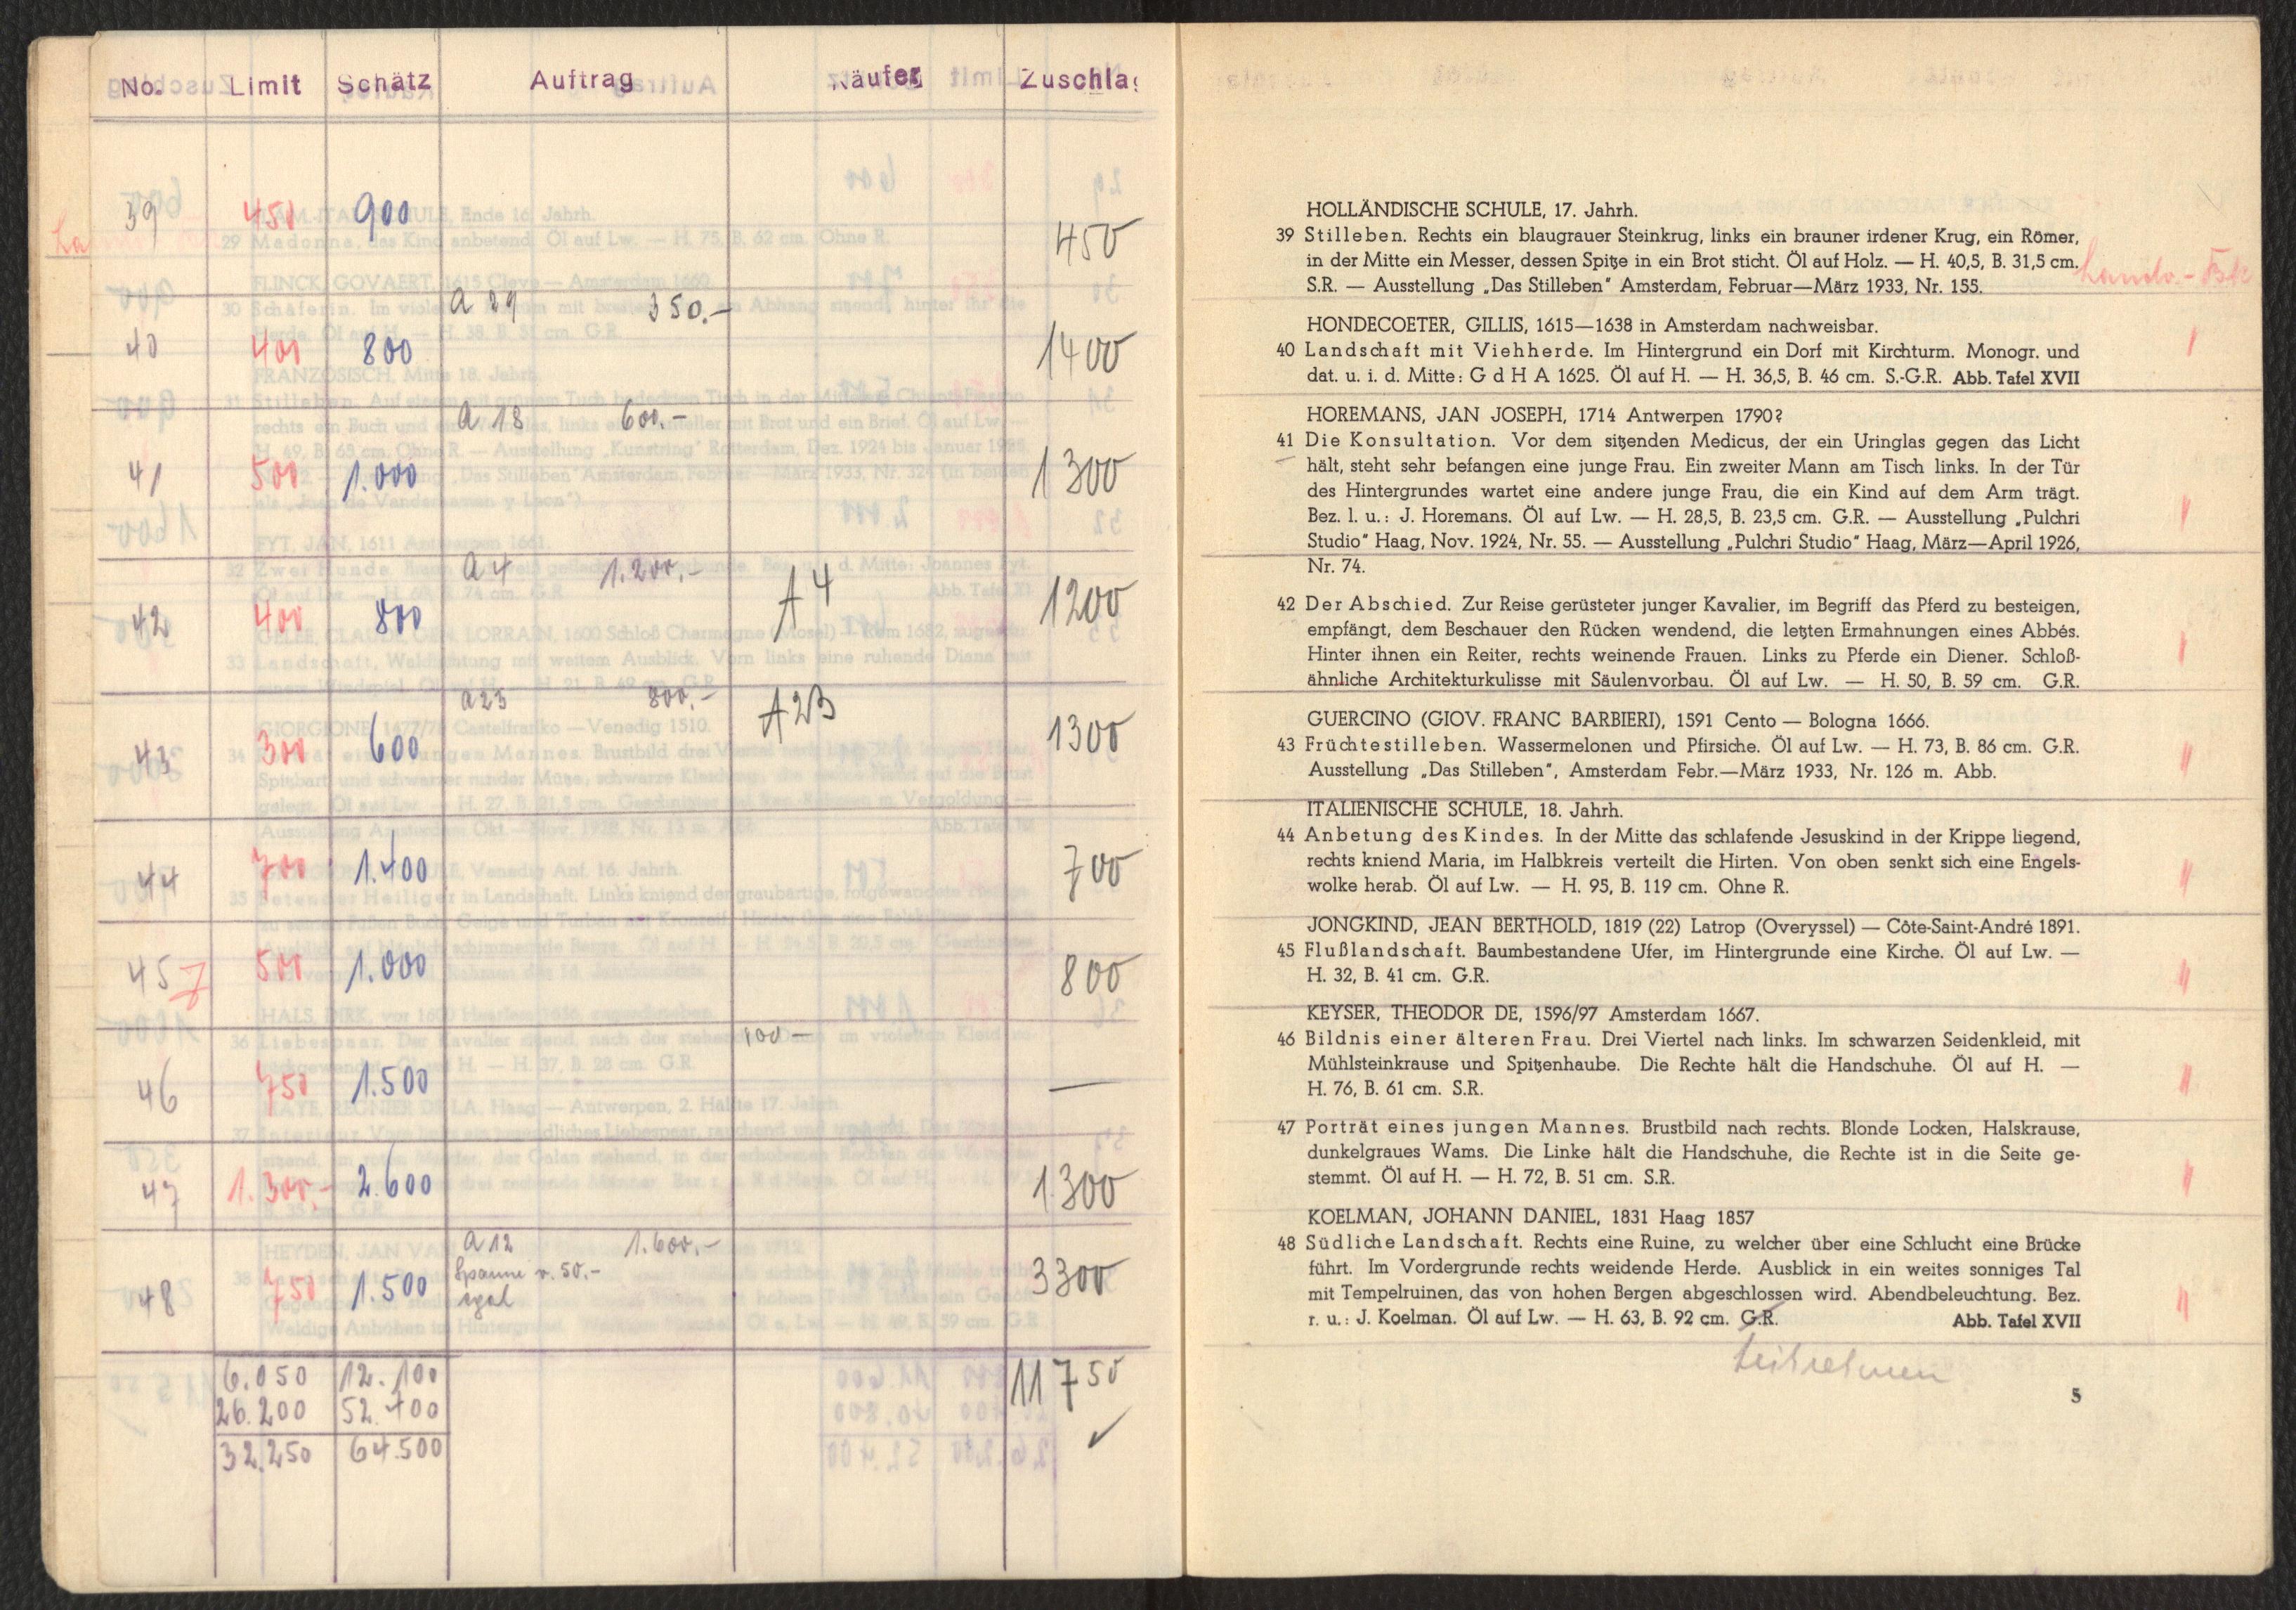 No. Limit Schätz Auftrag Käufer Zuschlag
39 450 900 450
a 29 350.-
40 400 800 1400
a 18 600.-
41 500 1.000 1300
a 4 1.200.- A 4
42 400 800 1200
a 23 800.- A 23
43 300 600 1300
44 700 1.400 700
45 500 1.000 800
100 —
46 750 1.500 —
47 1.300.- 2.600 1300
a 12 1.600.-
48 750 1.500 3300
v. 50.-
6.050 12.100 11750
26.200 52.400
32.250 64.500
HOLLÄNDISCHE SCHULE, 17. Jahrh.
39 Stilleben. Rechts ein blaugrauer Steinkrug, links ein brauner irdener Krug, ein Römer,
in der Mitte ein Messer, dessen Spitze in ein Brot sticht. Öl auf Holz. — H. 40,5, B. 31,5 cm.
S.R. — Ausstellung „Das Stilleben" Amsterdam, Februar—März 1933, Nr. 155.
HONDECOETER, GILLIS, 1615—1638 in Amsterdam nachweisbar.
40 Landschaft mit Viehherde. Im Hintergrund ein Dorf mit Kirchturm. Monogr. und
dat. u. i. d. Mitte: G d H A 1625. Öl auf H. — H. 36,5, B. 46 cm. S.-G.R. Abb. Tafel XVII
HOREMANS, JAN JOSEPH, 1714 Antwerpen 1790?
41 Die Konsultation. Vor dem sitzenden Medicus, der ein Uringlas gegen das Licht
hält, steht sehr befangen eine junge Frau. Ein zweiter Mann am Tisch links. In der Tür
des Hintergrundes wartet eine andere junge Frau, die ein Kind auf dem Arm trägt.
Bez. l. u.: J. Horemans. Öl auf Lw. — H. 28,5, B. 23,5 cm. G.R. — Ausstellung „Pulchri
Studio" Haag, Nov. 1924, Nr. 55. — Ausstellung „Pulchri Studio" Haag, März—April 1926,
Nr. 74.
42 Der Abschied. Zur Reise gerüsteter junger Kavalier, im Begriff das Pferd zu besteigen,
empfängt, dem Beschauer den Rücken wendend, die letzten Ermahnungen eines Abbés.
Hinter ihnen ein Reiter, rechts weinende Frauen. Links zu Pferde ein Diener. Schloß-
ähnliche Architekturkulisse mit Säulenvorbau. Öl auf Lw. — H. 50, B. 59 cm. G.R.
GUERCINO (GIOV. FRANC BARBIERI), 1591 Cento — Bologna 1666.
43 Früchtestilleben. Wassermelonen und Pfirsiche. Öl auf Lw. — H. 73, B. 86 cm. G.R.
Ausstellung „Das Stilleben", Amsterdam Febr.—März 1933, Nr. 126 m. Abb.
ITALIENISCHE SCHULE, 18. Jahrh.
44 Anbetung des Kindes. In der Mitte das schlafende Jesuskind in der Krippe liegend,
rechts kniend Maria, im Halbkreis verteilt die Hirten. Von oben senkt sich eine Engels-
wolke herab. Öl auf Lw. — H. 95, B. 119 cm. Ohne R.
JONGKIND, JEAN BERTHOLD, 1819 (22) Latrop (Overyssel) — Côte-Saint-André 1891.
45 Flußlandschaft. Baumbestandene Ufer, im Hintergrunde eine Kirche. Öl auf Lw. —
H. 32, B. 41 cm. G.R.
KEYSER, THEODOR DE, 1596/97 Amsterdam 1667.
46 Bildnis einer älteren Frau. Drei Viertel nach links. Im schwarzen Seidenkleid, mit
Mühlsteinkrause und Spitzenhaube. Die Rechte hält die Handschuhe. Öl auf H. —
H. 76, B. 61 cm. S.R.
47 Porträt eines jungen Mannes. Brustbild nach rechts. Blonde Locken, Halskrause,
dunkelgraues Wams. Die Linke hält die Handschuhe, die Rechte ist in die Seite ge-
stemmt. Öl auf H. — H. 72, B. 51 cm. S.R.
KOELMAN, JOHANN DANIEL, 1831 Haag 1857
48 Südliche Landschaft. Rechts eine Ruine, zu welcher über eine Schlucht eine Brücke
führt. Im Vordergrunde rechts weidende Herde. Ausblick in ein weites sonniges Tal
mit Tempelruinen, das von hohen Bergen abgeschlossen wird. Abendbeleuchtung. Bez.
r. u.: J. Koelman. Öl auf Lw. — H. 63, B. 92 cm. G.R. Abb. Tafel XVII
5